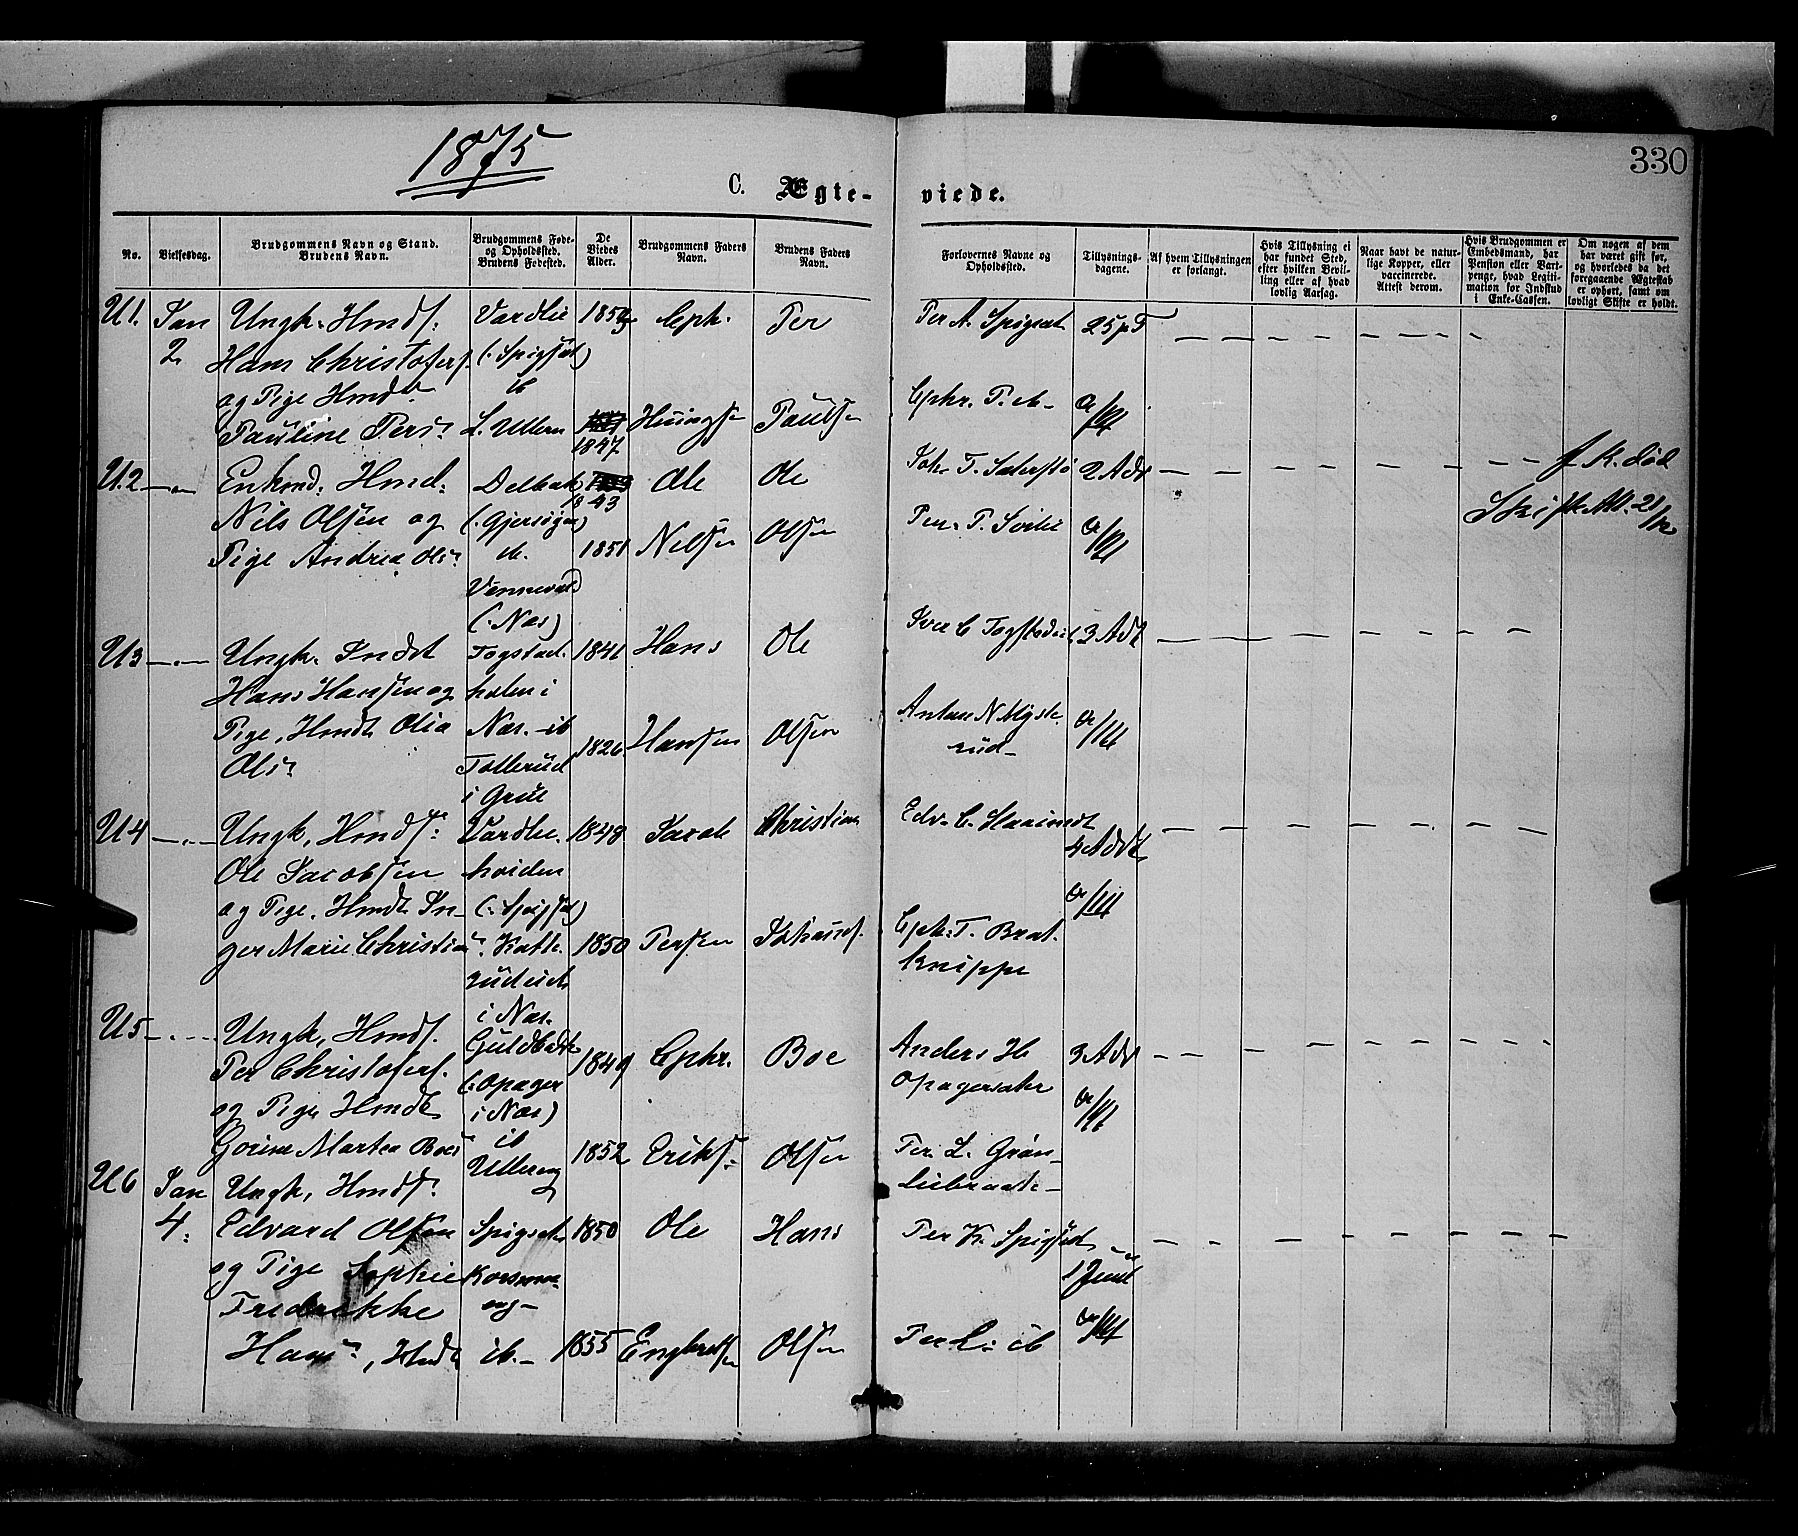 1875
330
C. Ægte-
viede.
No.
Vielsesdag.
Brudgommens Navn og Stand.
Brudens Navn.
Brudgommens Føde-
og Opholdssted.
Brudens Fødested.
De
Viedes
Alder.
Brudgommens Faders
Navn.
Brudens Faders
Navn.
Forlovernes Navne og
Opholdssted.
Tillysnings-
dagene.
Af hvem Tillysningen
er forlangt.
Hvis Tillysning ei
har fundet Sted,
efter hvilken Bevil-
ling eller af hvad
lovlig Aarsag.
Naar havt de natur-
lige Kopper, eller
vaccinerede.
Attest derom.
Hvis Brudgommen er
Embedsmand, har
Pension eller Vart-
penge, hvad Legiti-
mation for Indskud
i Enke-Cassen.
Om nogen af dem
har været gift før,
og hvorledes da det
foregaaende Ægteskab
er ophørt, samt om
lovligt Skifte er holdt.
U1.
Jan
2
Ungk. Hmdsf.
Hans Christofersf.
og Pige Hmdt
Pauline Persd
Vardlie
(: Spigset)
ib
L. Ullern
1847
Cph.
Hningsen
Per
Paulsen
Per A. Spigset
Cphr. P. ib
U.2
Enkmd. Hmd.
Nils Olsen og
Pige Andrea Olsd
(: Gjersøyen)
ib.
Vennevold
(: Næs)
1843
1851
Ole
Nilsen
Ole
Olsen
2 Adv
f. K. død
Skifte Att. 21/12
U3
Ungk. Indst
Hans Hansen og
Pige, Hmdt Olia
Olsd
Togstad-
holen i
Næs - ib
Tollerud
i Grue
1841
1826
Hans
Hansen
Ole
Olsen
3 Adv
Anton N Myste-
rud-
U4
Ungk, Hmdsf.
Ole Jacobsen
og Pige. Hmdt In-
ger Marie Christiansd
Vardlie-
hviden
(: Spigset)
Katte-
rudeiet
i Næs
1848
1850
Jacob
Persen
Christian
Johansf.
4 Advt
Cph. T. Brat-
knippe
U5
Ungk, Hmdsf.
Per Christofersf.
og Pige Hmdt
Gorine Martea Boesd
Guldbakk
(: Opager
i Næs)
ib
Ullereng
1849
1852
Cphr.
Eriks.
Boe
Olsen
Anders H
Opagersæter
3 Adv
Per L. Grøn-
liebraate-
U6
Jan
4.
Ungk, Hmdsf.
Edvard Olsen
og Pige Sophie
Fredrikke
Hansd, Hmdt
Spigset
Korsmo-
eng-
ib.-
1850
1855
Ole
Engbretsen
Hans
Olsen
Per K. Spigset
1 Juul
Per L. ib